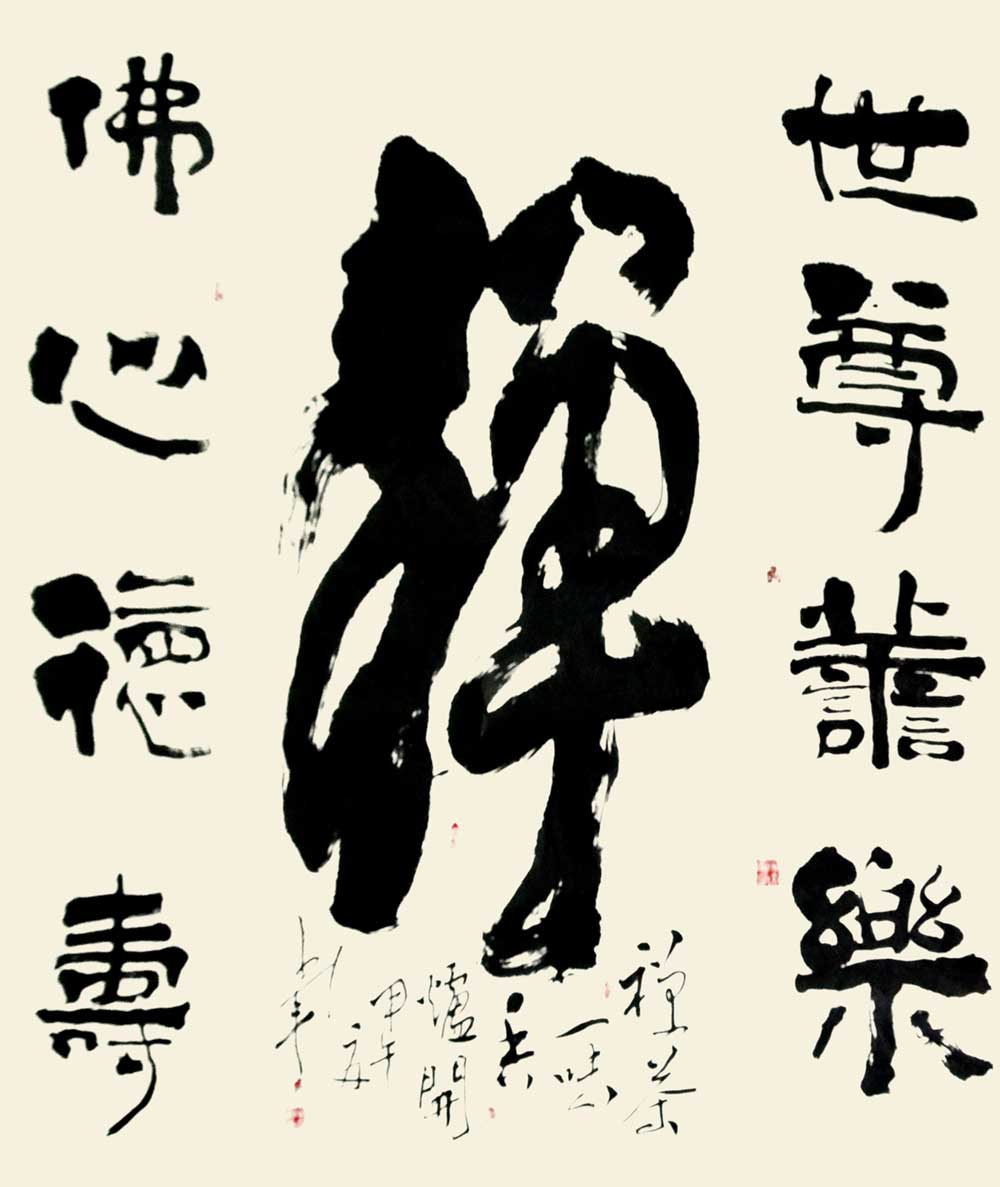 世尊譱樂
禪
佛心德壽
禪茶
一味
香
爐開
甲午